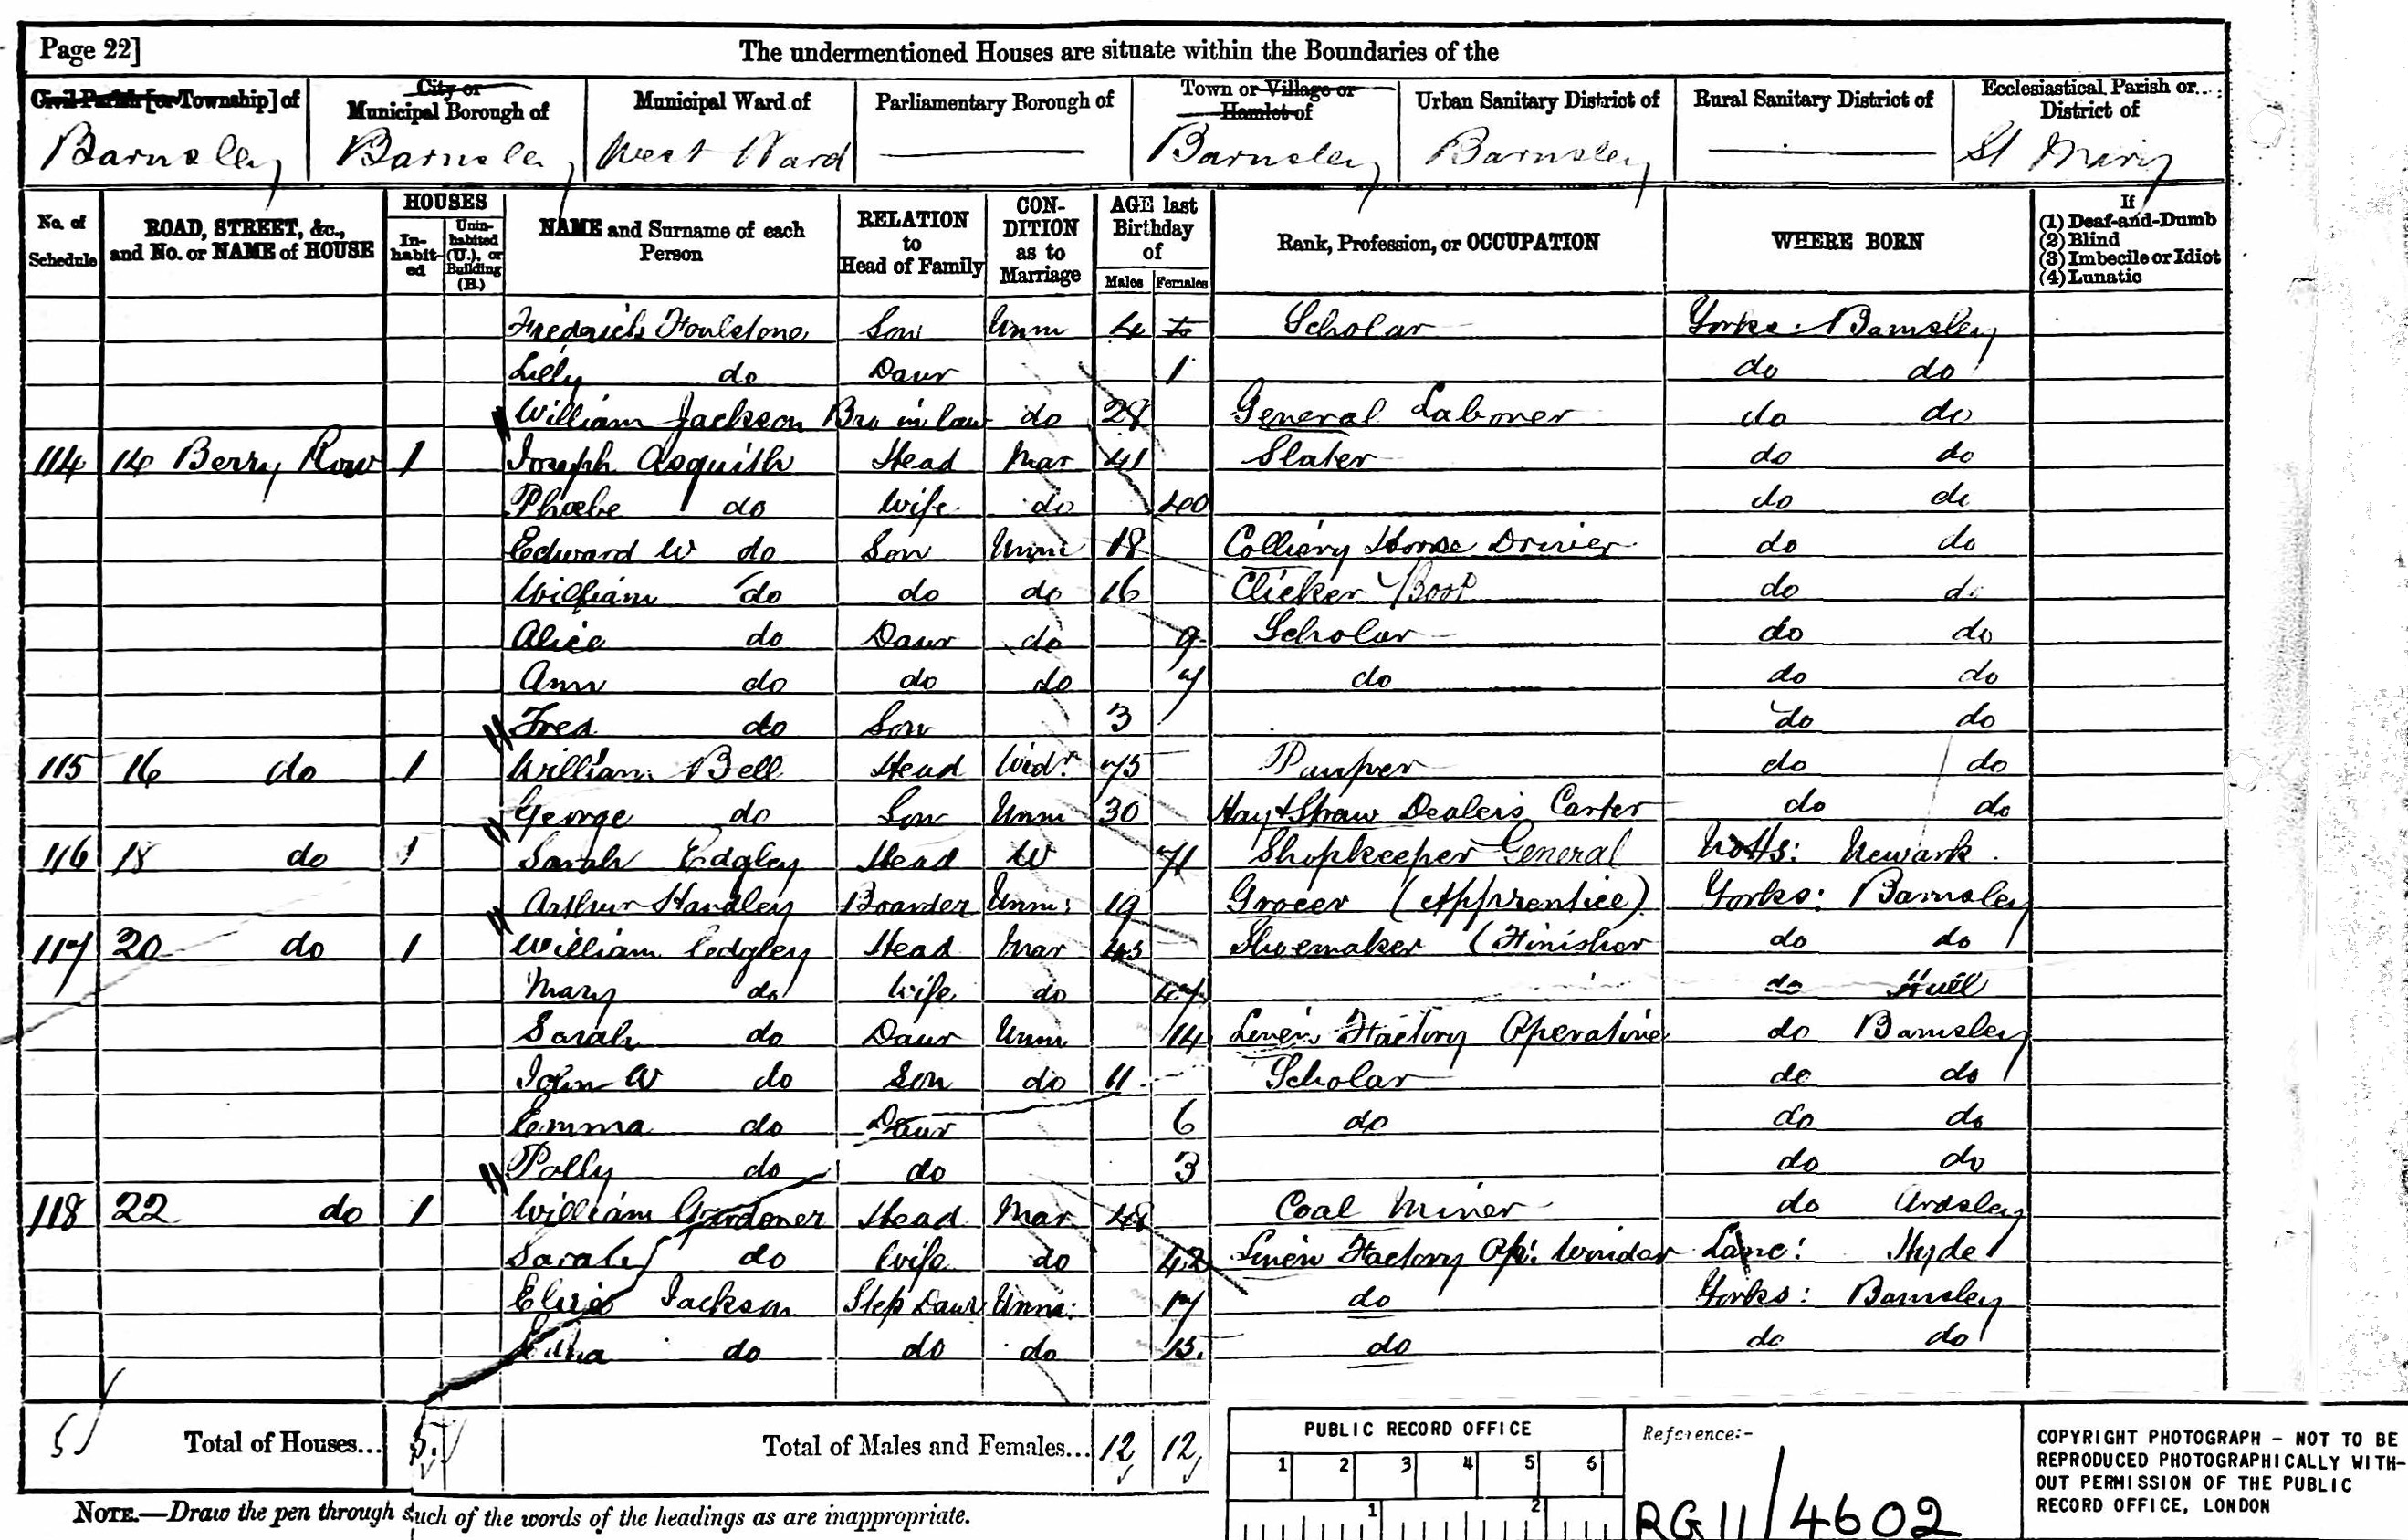 Page 22] The undermentioned Houses are situate within the Boundaries of the
Civil Parish [or Township] of City or Municipal Borough of Municipal Ward of Parliamentary Borough of Town or Village or Hamlet of Urban Sanitary District of Rural Sanitary District of Ecclesiastical Parish or District of
Barnsley Barnsley West Ward Barnsley Barnsley St Mary
No. of Schedule ROAD, STREET, &c., and No. or NAME of HOUSE HOUSES Inhabited Uninhabited (U.), or Building (B.) NAME and Surname of each Person RELATION to Head of Family CONDITION as to Marriage AGE last Birthday of Males Females Rank, Profession, or OCCUPATION WHERE BORN If (1) Deaf-and-Dumb (2) Blind (3) Imbecile or Idiot (4) Lunatic
Frederick Foulstone Son Unm 4 Scholar Yorks: Barnsley
Lily do Daur 1 do do
William Jackson Bro in law do 28 General Laborer do do
114 14 Berry Row 1 Joseph Asquith Head Mar 41 Slater do do
Phœbe do Wife do 40 do do
Edward W do Son Unm 18 Colliery Horse Driver do do
William do do do 16 Clicker Boot do do
Alice do Daur do 9 Scholar do do
Ann do do do 7 do do do
Fred do Son 3 do do
115 16 do 1 William Bell Head Widr 75 Pauper do do
George do Son Unm 30 Hay & Straw Dealers Carter do do
116 18 do 1 Sarah Edgley Head W 71 Shopkeeper General Notts: Newark
Arthur Handley Boarder Unm: 19 Grocer (Apprentice) Yorks: Barnsley
117 20 do 1 William Edgley Head Mar 45 Shoemaker (Finisher do do
Mary do Wife do 47 do Hull
Sarah do Daur Unm 14 Linen Factory Operative do Barnsley
John W do Son do 11 Scholar do do
Emma do Daur 6 do do do
Polly do do 3 do do
118 22 do 1 William Gardener Head Mar 48 Coal Miner do Ardsley
Sarah do Wife do 42 Linen Factory Op: Winder Lanc: Hyde
Eliza Jackson Step Daur Unm: 17 do Yorks: Barnsley
do do do 15 do do do
5 Total of Houses... 5 Total of Males and Females... 12 12
NOTE.—Draw the pen through such of the words of the headings as are inappropriate.
PUBLIC RECORD OFFICE
1 2 3 4 5 6
1 2
Reference:-
RG 11/4602
COPYRIGHT PHOTOGRAPH – NOT TO BE
REPRODUCED PHOTOGRAPHICALLY WITH-
OUT PERMISSION OF THE PUBLIC
RECORD OFFICE, LONDON